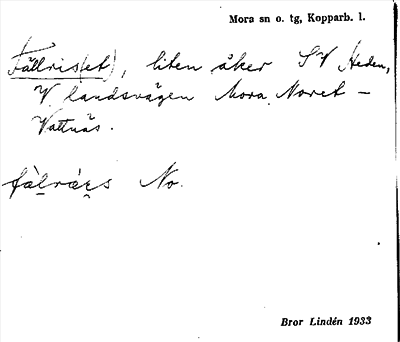 Mora sn o. tg, Kopparb. l.
Fällris(et), liten åker SV Heden,
V landsvägen Mora Noret –
Vattnäs.
No.
Bror Lindén 1933